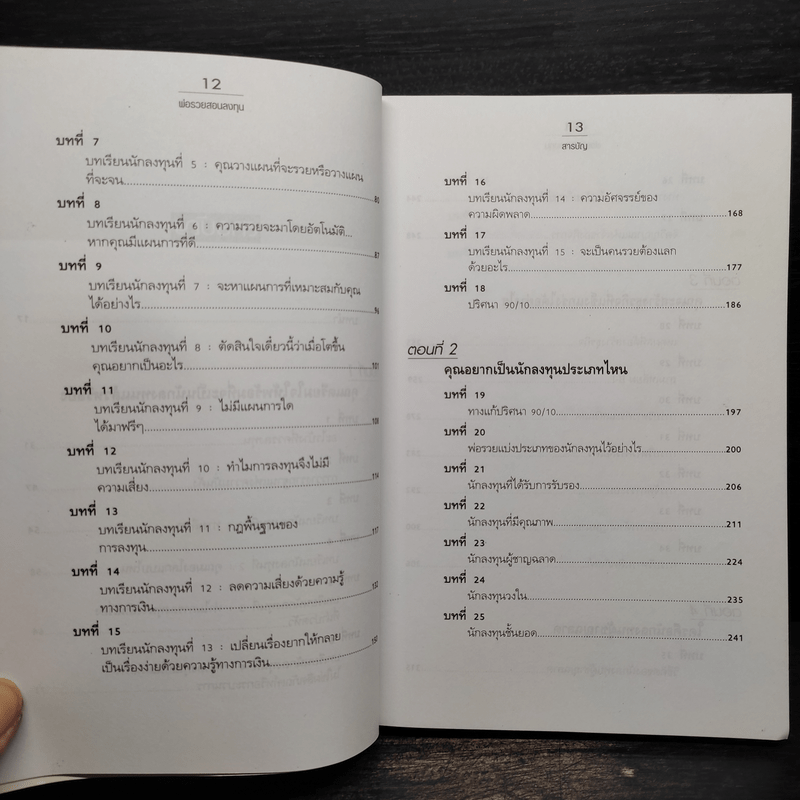 12
พ่อรวยสอนลงทุน
บทที่ 7
บทเรียนนักลงทุนที่ 5 : คุณวางแผนที่จะรวยหรือวางแผน
ที่จะจน........80
บทที่ 8
บทเรียนนักลงทุนที่ 6 : ความรวยจะมาโดยอัตโนมัติ...
หากคุณมีแผนการที่ดี........87
บทที่ 9
บทเรียนนักลงทุนที่ 7 : จะหาแผนการที่เหมาะสมกับคุณ
ได้อย่างไร........
บทที่ 10
บทเรียนนักลงทุนที่ 8 : ตัดสินใจเดี๋ยวนี้ว่าเมื่อโตขึ้น
คุณอยากเป็นอะไร........101
บทที่ 11
บทเรียนนักลงทุนที่ 9 : ไม่มีแผนการใด
ได้มาฟรีๆ........108
บทที่ 12
บทเรียนนักลงทุนที่ 10 : ทำไมการลงทุนจึงไม่มี
ความเสี่ยง........114
บทที่ 13
บทเรียนนักลงทุนที่ 11 : กฎพื้นฐานของ
การลงทุน........117
บทที่ 14
บทเรียนนักลงทุนที่ 12 : ลดความเสี่ยงด้วยความรู้
ทางการเงิน........132
บทที่ 15
บทเรียนนักลงทุนที่ 13 : เปลี่ยนเรื่องยากให้กลาย
เป็นเรื่องง่ายด้วยความรู้ทางการเงิน........150
13
สารบัญ
บทที่ 16
บทเรียนนักลงทุนที่ 14 : ความอัศจรรย์ของ
ความผิดพลาด........168
บทที่ 17
บทเรียนนักลงทุนที่ 15 : จะเป็นคนรวยต้องแลก
ด้วยอะไร........177
บทที่ 18
ปริศนา 90/10........186
ตอนที่ 2
คุณอยากเป็นนักลงทุนประเภทไหน
บทที่ 19
ทางแก้ปริศนา 90/10........197
บทที่ 20
พ่อรวยแบ่งประเภทของนักลงทุนไว้อย่างไร........200
บทที่ 21
นักลงทุนที่ได้รับการรับรอง........206
บทที่ 22
นักลงทุนที่มีคุณภาพ........211
บทที่ 23
นักลงทุนผู้ชาญฉลาด........224
บทที่ 24
นักลงทุนวงใน........235
บทที่ 25
นักลงทุนชั้นยอด........241